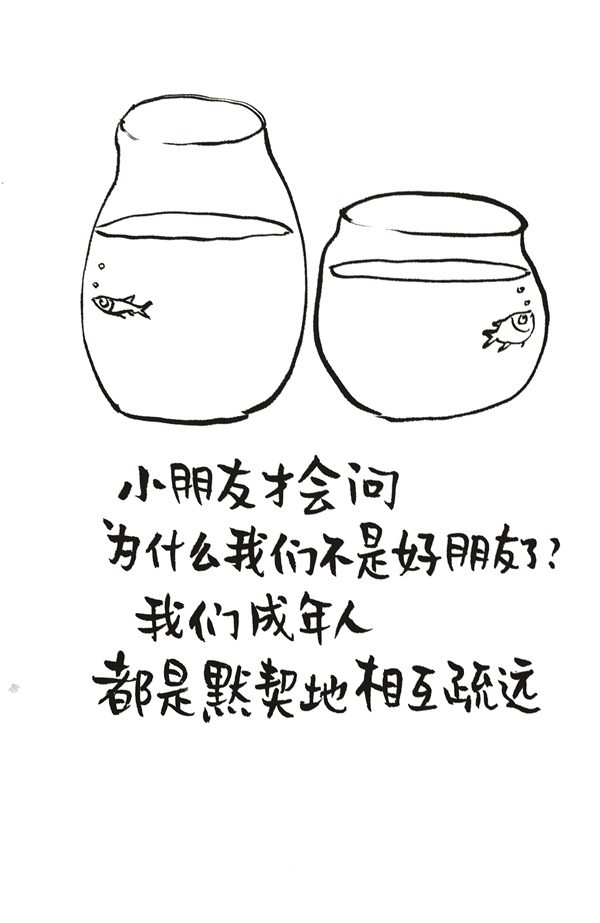 小朋友才会问
为什么我们不是好朋友了?
我们成年人
都是默契地相互疏远